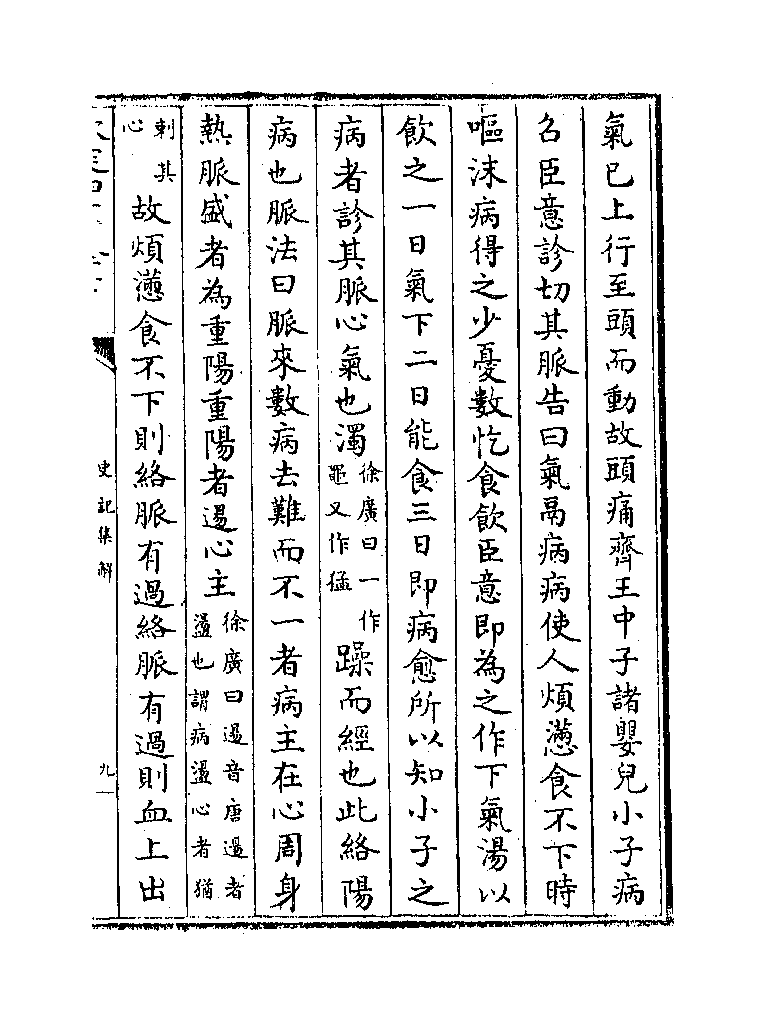 氣已上行至頭而動故頭痛齊王中子諸嬰兒小子病
召臣意診切其脈告曰氣鬲病病使人煩懣食不下時
嘔沫病得之少憂數忔食飲臣意即為之作下氣湯以
飲之一日氣下二日能食三日即病愈所以知小子之
病者診其脈心氣也濁徐廣曰一作黽又作猛躁而經也此絡陽
病也脈法曰脈來數病去難而不一者病主在心周身
熱脈盛者為重陽重陽者逿心主徐廣曰逿音唐逿者盪也謂病盪心者猶
刺其心故煩懣食不下則絡脈有過絡脈有過則血上出
史記集解
九